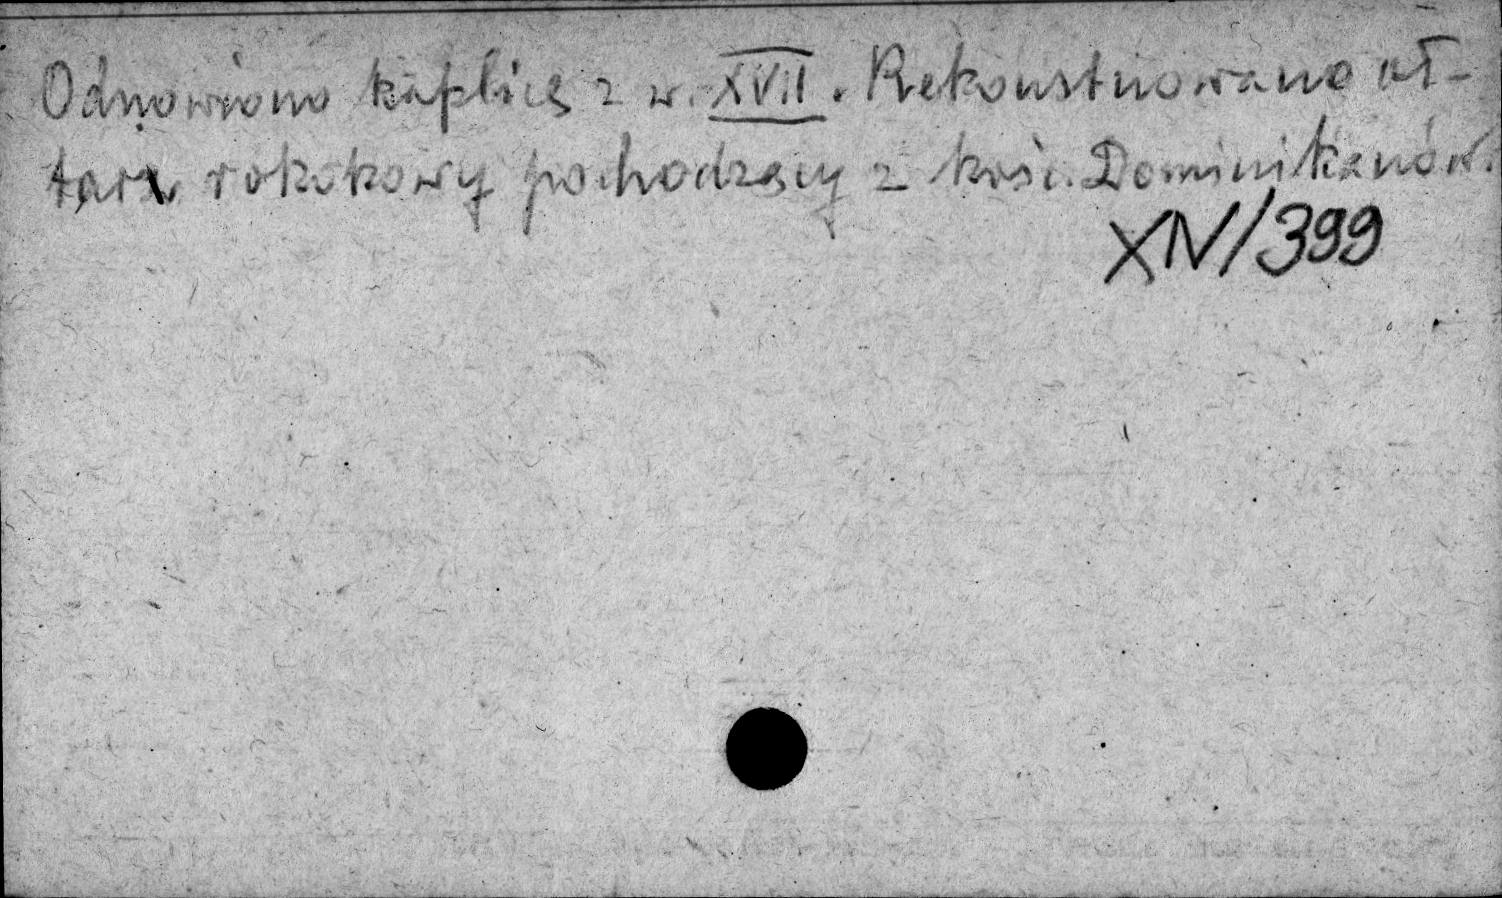 Odnowiono kaplicę z w. XVII. Rekonstruowano oł-
tarz rokokowy pochodzący z kośc. Dominikanów.
XIV/399